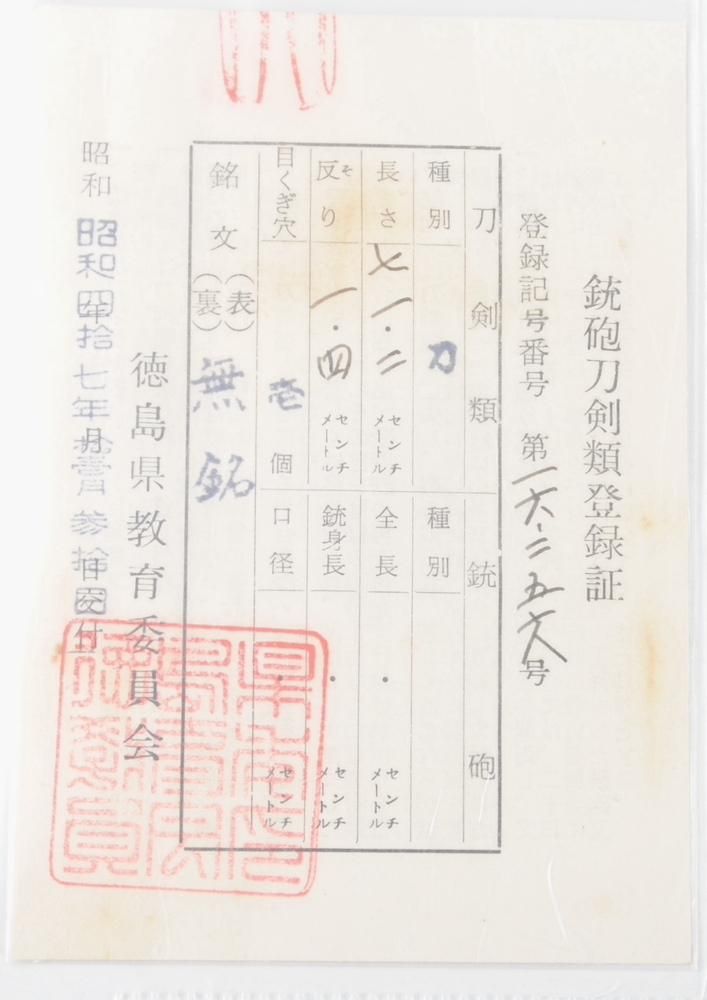 銃砲刀剣類登録証
登録記号番号 第一六、二五 号
刀剣類
銃砲
種別 刀
種別
長さ 七一・二 センチメートル
全長 ・ センチメートル
反り そ 一・四 センチメートル
銃身長 ・ センチメートル
目くぎ穴 壱個
口径 ・ センチメートル
銘文 (表)
(裏)
無銘
徳島県教育委員会
昭和 昭和四拾七年 月 日交付